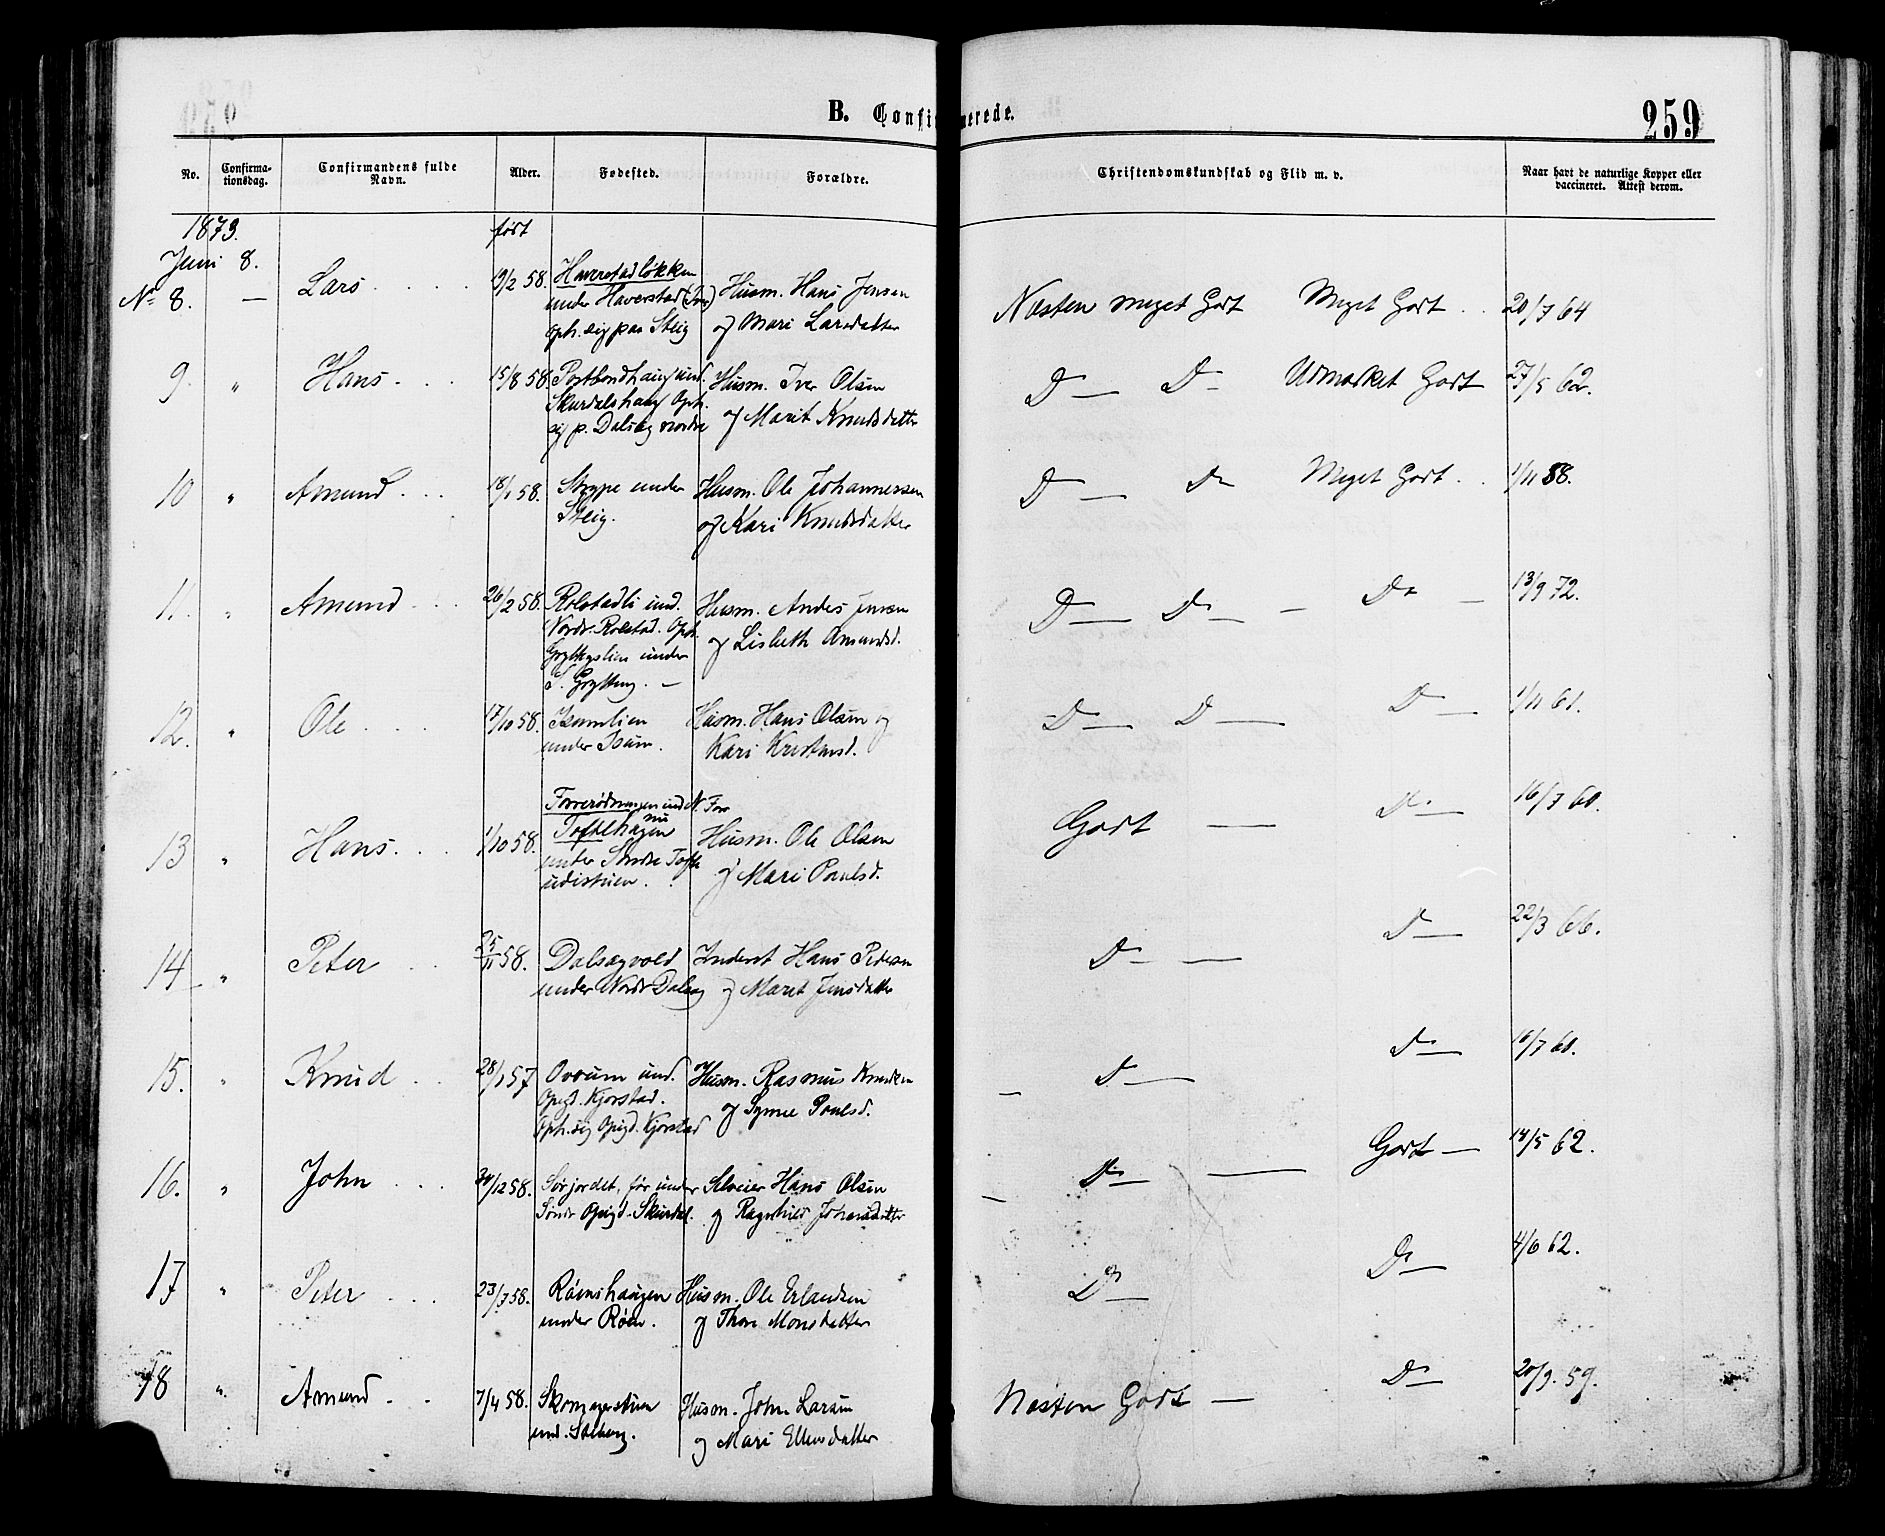 B. Confirmerede.
259
No.
Confirma-
tionsdag.
Confirmandens fulde
Navn.
Alder.
Fødested.
Forældre.
Christendomskundskab og Flid m. v.
Naar havt de naturlige Kopper eller
vaccineret. Attest derom.
1873.
Juni 8.
født
No 8. — Lars 19/2 58. Haverstadløkken
under Haverstad
oph. sig paa Steig
Husm. Hans Jensen
og Mari Larsdatter
Næsten meget Godt Meget Godt 20/7 64
9. " Hans 15/8 58 und.
Skurdalshaug Oph.
sig p. Dalseg nordre
Husm. Iver Olsen
og Marit Knudsdatter
Do — Do Udmærket Godt 27/5 62.
10 " Amund 18/1 58. Strype under
Steig.
Husm. Ole Johannessen
og Kari Knudsdatter
Do — Do Meget Godt 1/11 58.
11. " Amund 26/2 58. Rolstadli und.
Nordr. Rolstad. Oph.
Gryttingslien under
S. Grytting. —
Husm. Andes Jensen
og Lisbeth Amundsd.
Do — Do — Do — 13/9 72.
12. " Ole 17/10 58. Isumlien
under Isum.
Husm. Hans Olsen og
Kari Kristensd.
Do — Do — Do — 1/11 61.
13 " Hans 1/10 58. und N. For
nu
Toftehagen
under Søndre Tofte
Husm. Ole Olsen
og Mari Poulsd.
Godt — Do — 16/7 60.
14 " Peter 25/11 58. Dalsegvold
under Nordr Dalseg
Inderst Hans Pedersen
og Marit Jensdatter
Do — Do — 22/3 66.
15. " Knud 28/1 57 und.
Opigd. Kjorstad.
Oph. sig Opigd. Kjorstad
Husm. Rasmus Knudsen
og Synne Poulsd.
— Do — Do — 16/7 60.
16. " John 30/12 58. Sørjordet, før under
Søndr Opigd. Skurdal.
Selveier Hans Olsen
og Ragnhild Johansdatter
— Do — Godt — 14/5 62.
17 " Peter 23/7 58. Røenshaugen
under Røen.
Husm. Ole Erlandsen
og Thore Monsdatter
Do — Do — 4/6 62.
18 " Amund 7/4 58.
und. Solberg.
Husm. John Larsen
og Mari Ellensdatter
Næsten Godt — Do — 20/9. 59.